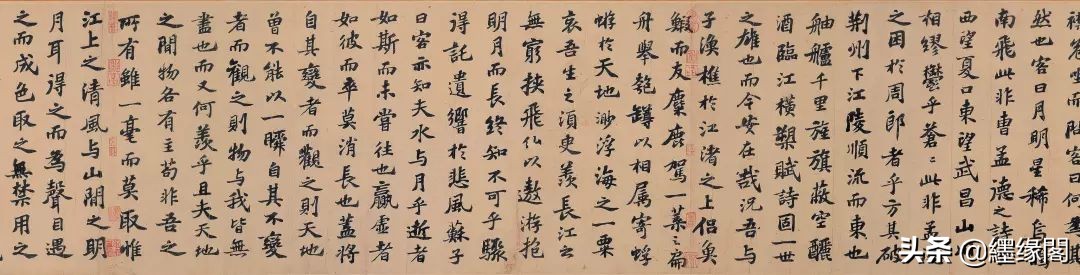 客曰何為其
然也客曰月明星稀烏
南飛此非曹孟德之詩
西望夏口東望武昌山
相繆鬱乎蒼〻此非孟
之困於周郎者乎方其破
荊州下江陵順流而東也
舳艫千里旌旗蔽空釃
酒臨江橫槊賦詩固一世
之雄也而今安在哉況吾與
子漁樵於江渚之上侶魚
鰕而友麋鹿駕一葉之扁
舟舉匏罇以相属寄蜉
蝣於天地渺浮海之一粟
哀吾生之須臾羨長江之
無窮挾飛仙以遨游抱
明月而長終知不可乎驟
得託遺響於悲風蘇子
曰客亦知夫水与月乎逝者
如斯而未嘗往也贏虛者
如彼而卒莫消長也蓋將
自其變者而觀之則天地
曾不能以一瞬自其不變
者而觀之則物与我皆無
盡也而又何羨乎且夫天地
之間物各有主苟非吾之
所有雖一毫而莫取惟
江上之清風与山間之明
月耳得之而為聲目遇
之而成色取之無禁用之
头条 @纒缘閣